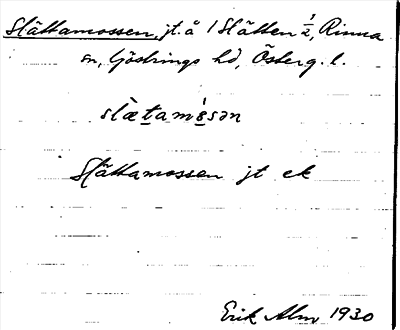 Slättamossen, jt. å 1 Slätten ½, Rinna
sn, Göstrings hd, Österg. l.
slæ̀tamósən
Slättamossen jt ek
Erik Alm 1930